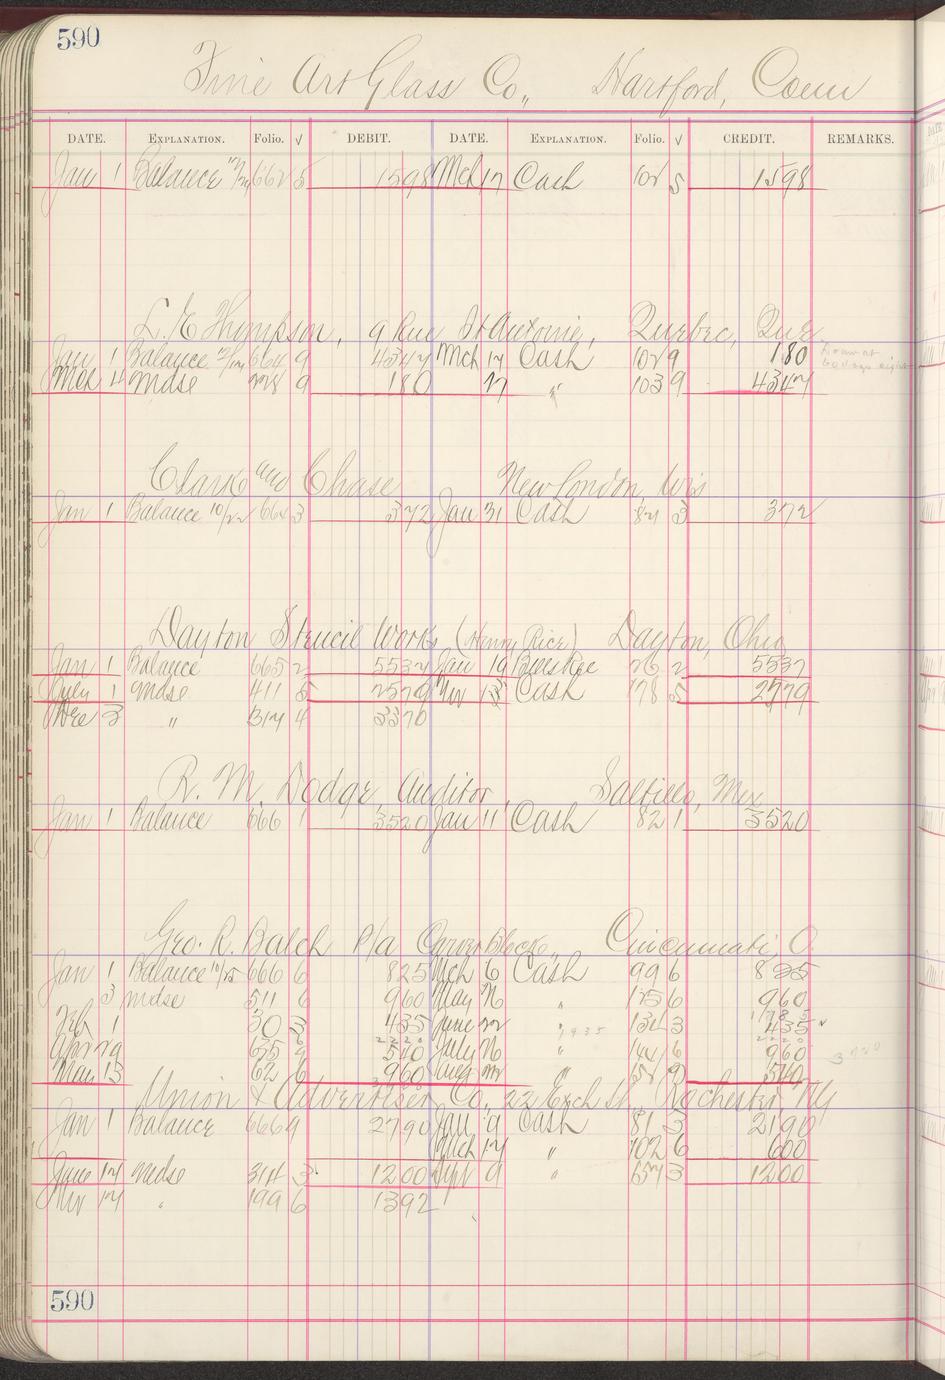 590
Fine Art Glass Co., Hartford, Conn
DATE. EXPLANATION. Folio. √ DEBIT. DATE. EXPLANATION. Folio. √ CREDIT. REMARKS.
Jan 1 Balance 662 5 1598 Mch 17 Cash 102 5 1598
L. E. Thompson, 9 Rue St Antoine, Quebec, Que
Jan 1 Balance 664 9 4347 Mch 17 Cash 102 9 180
Mch 4 Mdse 228 9 180 17 " 103 9 4347
Clark and Chase New London, Wis
Jan 1 Balance 10/22 664 3 372 Jan 31 Cash 87 3 372
Dayton Stencil Works (Henry Rice) Dayton, Ohio
Jan 1 Balance 665 2 5537 Jan 19 76 2 5537
July 1 Mdse 411 5 2579 Nov Cash 178 5 2579
Dec 3 " 317 4 3370
R. M. Dodge, Auditor, Saltillo, Mex
Jan 1 Balance 666 1 3520 Jan 11 Cash 82 1 3520
Geo. R. Balch P/a Cincinnati, O.
Jan 1 Balance 666 6 825 Mch 6 Cash 99 6 825
3 Mdse 511 6 960 May 125 6 960
Feb 1 30 3 435 June 22 " 134 3 435
Apr 29 635 9 540 July " 144 6 960
May 13 62 6 960 Aug " 9 540
Union & Advertiser Co., 22 Exch St. Rochester, NY
Jan 1 Balance 666 9 2790 Jan 9 Cash 81 3 2190
Mch 17 " 102 6 600
June 17 Mdse 314 3 1200 Sept 9 " 157 3 1200
Nov 17 " 199 6 1392
590